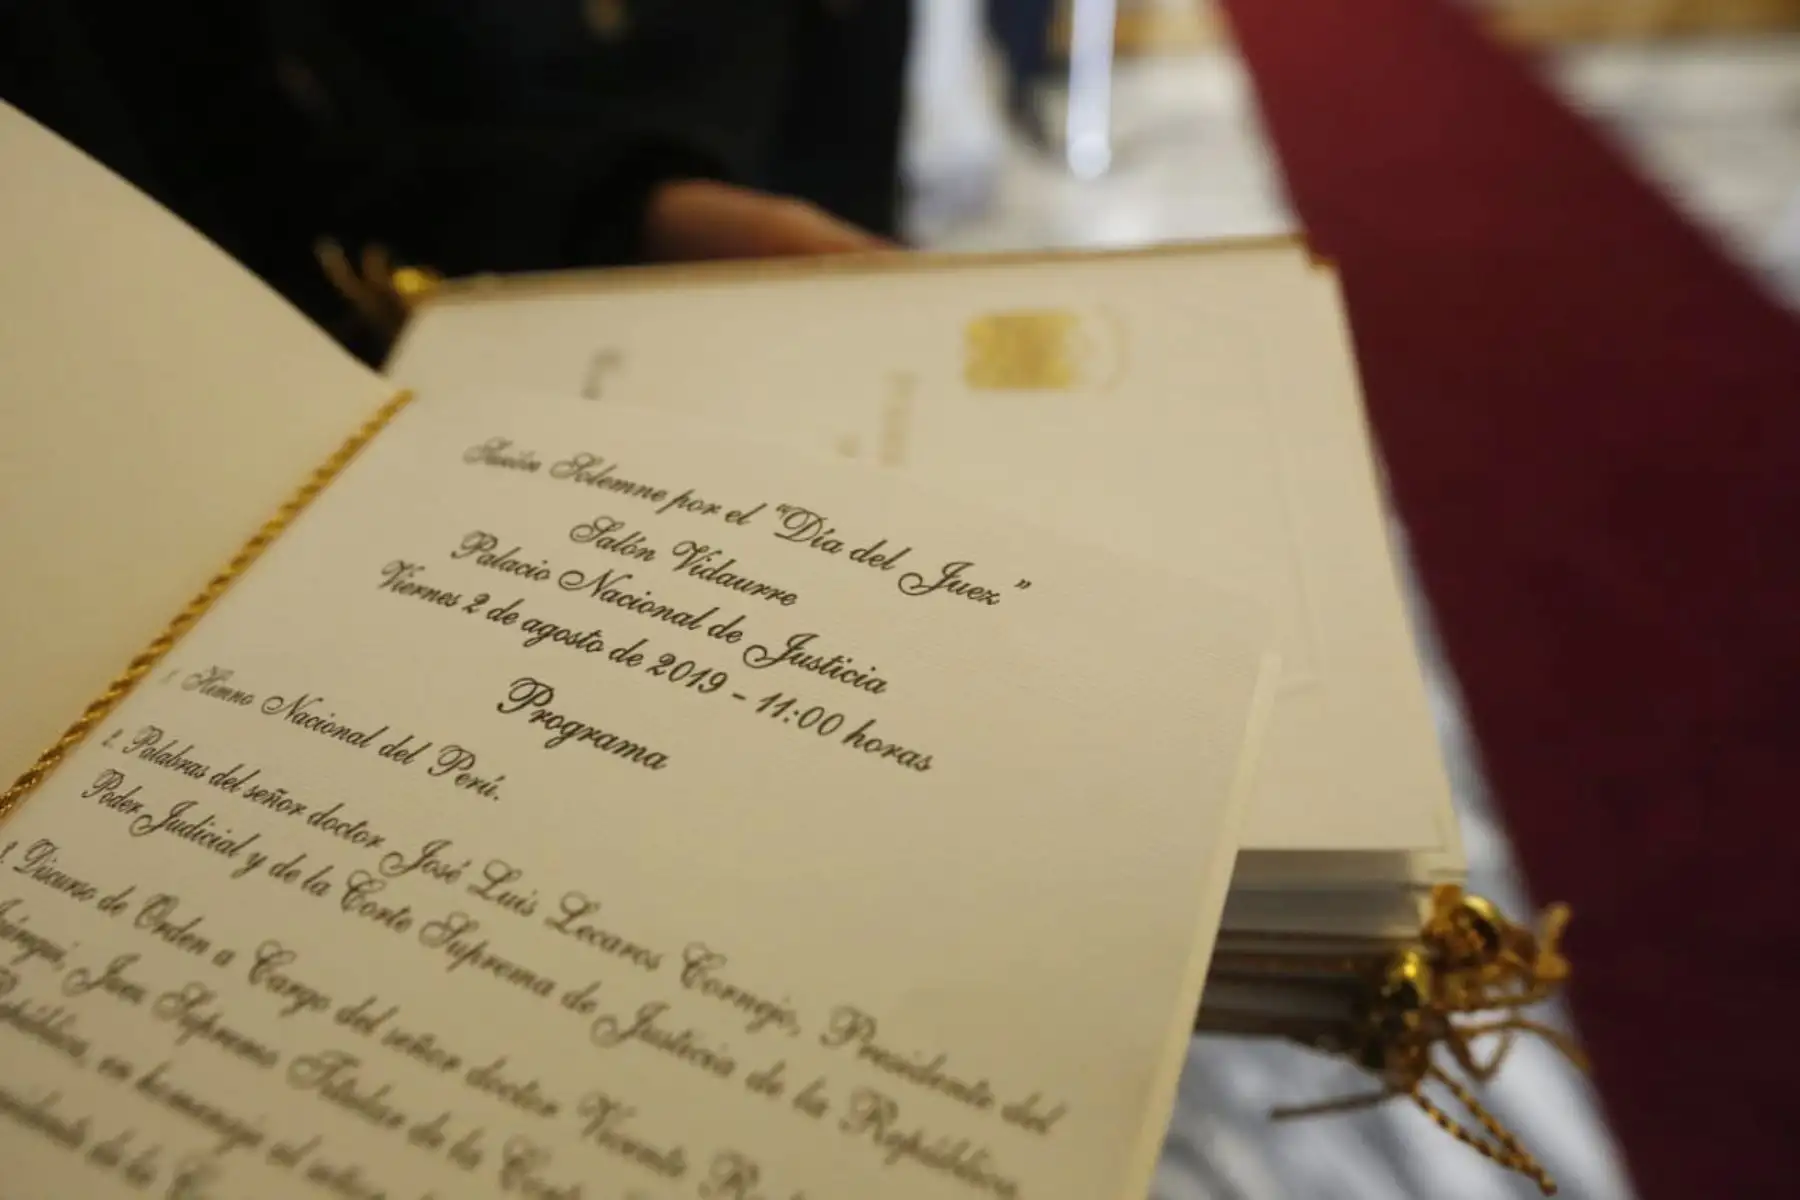 Sesión Solemne por el "Día del Juez"
Salón Vidaurre
Palacio Nacional de Justicia
Viernes 2 de agosto de 2019 - 11:00 horas
Programa
1. Himno Nacional del Perú.
2. Palabras del señor doctor José Luis Lecaros Cornejo, Presidente del
Poder Judicial y de la Corte Suprema de Justicia de la República.
3. Discurso de Orden a Cargo del señor doctor Vicente
Juez Supremo Titular de la Corte
República, en homenaje al señor
de la